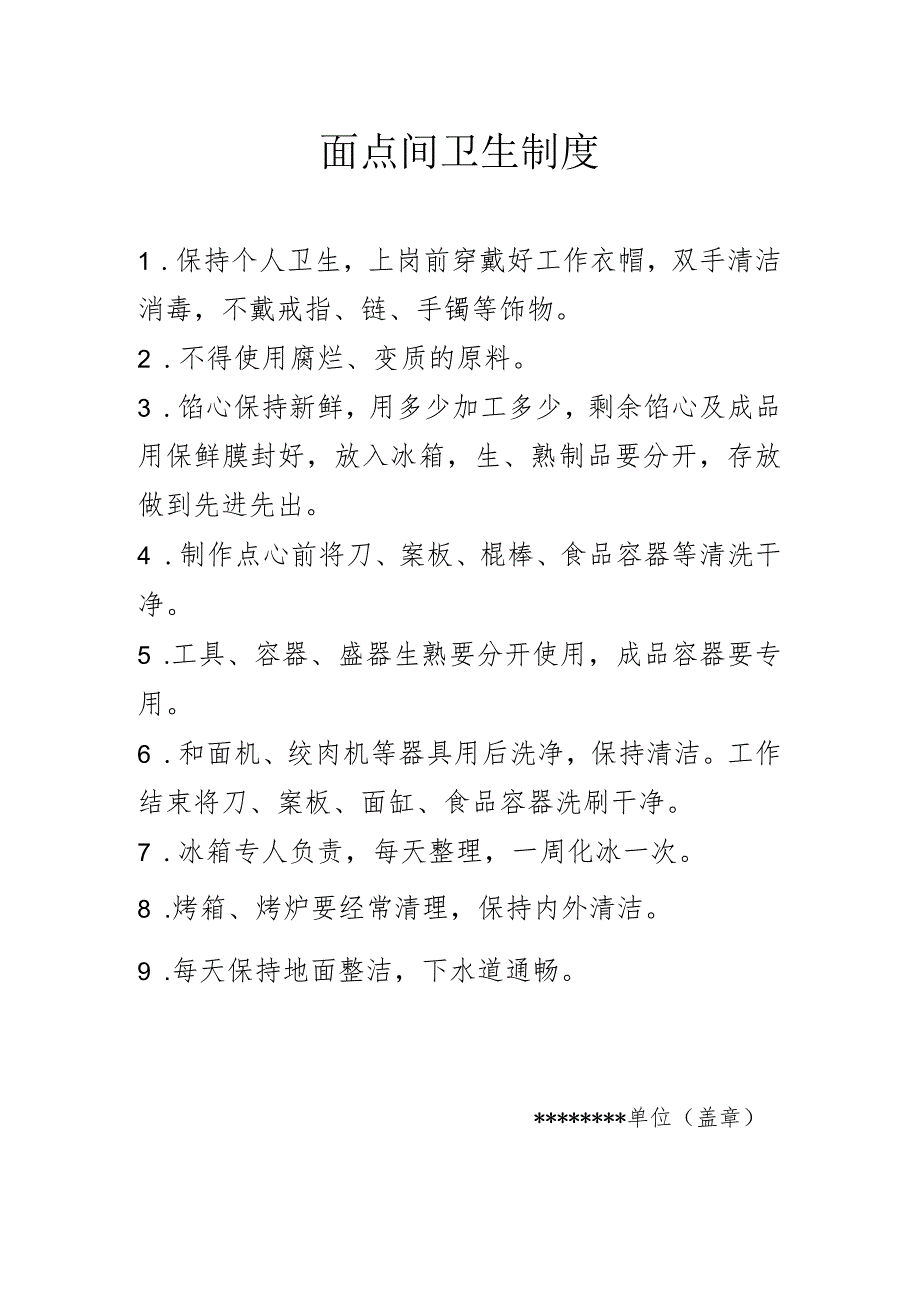 面点间卫生制度
1 .保持个人卫生，上岗前穿戴好工作衣帽，双手清洁
消毒，不戴戒指、链、手镯等饰物。
2 .不得使用腐烂、变质的原料。
3 .馅心保持新鲜，用多少加工多少，剩余馅心及成品
用保鲜膜封好，放入冰箱，生、熟制品要分开，存放
做到先进先出。
4 .制作点心前将刀、案板、棍棒、食品容器等清洗干
净。
5 .工具、容器、盛器生熟要分开使用，成品容器要专
用。
6 .和面机、绞肉机等器具用后洗净，保持清洁。工作
结束将刀、案板、面缸、食品容器洗刷干净。
7 .冰箱专人负责，每天整理，一周化冰一次。
8 .烤箱、烤炉要经常清理，保持内外清洁。
9 .每天保持地面整洁，下水道通畅。
********单位（盖章）